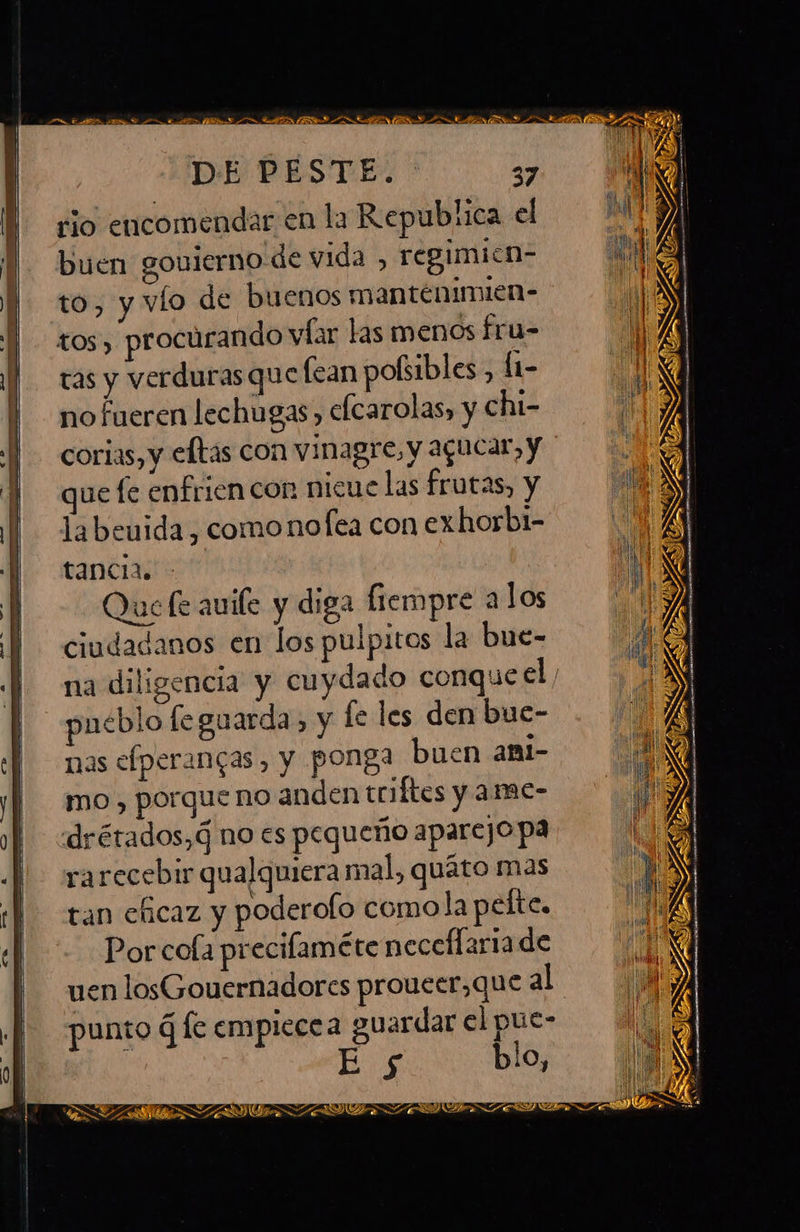 DE PESTE. 37
rio encomendar en la Republica el
buen gouierno de vida , regimien-
to, y vſo de buenos mantenimien-
tos, procurando vſar las menos fru-
tas y verduras que ſean poſsibles , ſi-
no fueren lechugas, eſcarolas, y chi-
corias, y eſtas con vinagre, y açucar, y
que ſe enfrien con nieue las frutas, y
la beuida, como no ſea con exhorbi-
tancia.
Que ſe auiſe y diga ſiempre a los
ciudadanos en los pulpitos la bue-
na diligencia y cuydado conque el
pueblo ſe guarda, y ſe les den bue-
nas eſperanças, y ponga buen ani-
mo, porque no anden triſtes y ame-
drẽtados, q̃ no es pequeño aparejo pa
ra recebir qualquiera mal, quãto mas
tan eficaz y poderoſo como la peſte.
Por coſa preciſamẽte neceſſaria de
uen los Gouernadores proueer, que al
punto q̃ ſe empiece a guardar el pue-
E 5 blo,